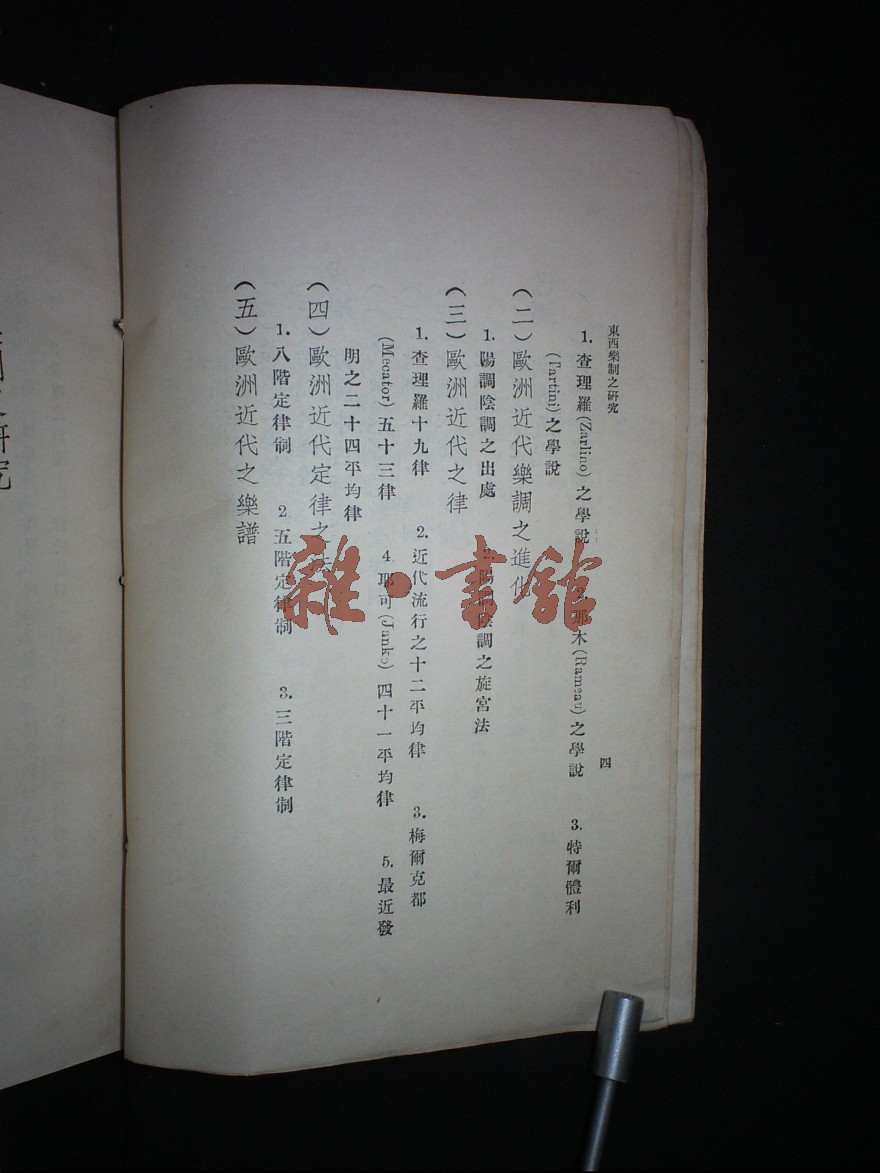 東西樂制之研究
四
1. 查理羅(Zarlino)之學說 2. 那木(Rameau)之學說 3. 特爾體利
(Tartini)之學說
(二)歐洲近代樂調之進化
1. 陽調陰調之出處 2. 陽調陰調之旋宮法
(三)歐洲近代之律
1. 查理羅十九律 2. 近代流行之十二平均律 3. 梅爾克都
(Mecator)五十三律 4. 耶可(Janko)四十一平均律 5. 最近發
明之二十四平均律
(四)歐洲近代定律之法
1. 八階定律制 2. 五階定律制 3. 三階定律制
(五)歐洲近代之樂譜
研究
雜·書館